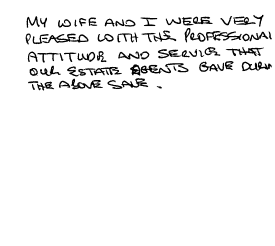 MY WIFE AND I WERE VERY
PLEASED WITH THE PROFESSIONAL
ATTITUDE AND SERVICE THAT
OUR ESTATE AGENTS GAVE DURIN
THE ABOVE SALE.